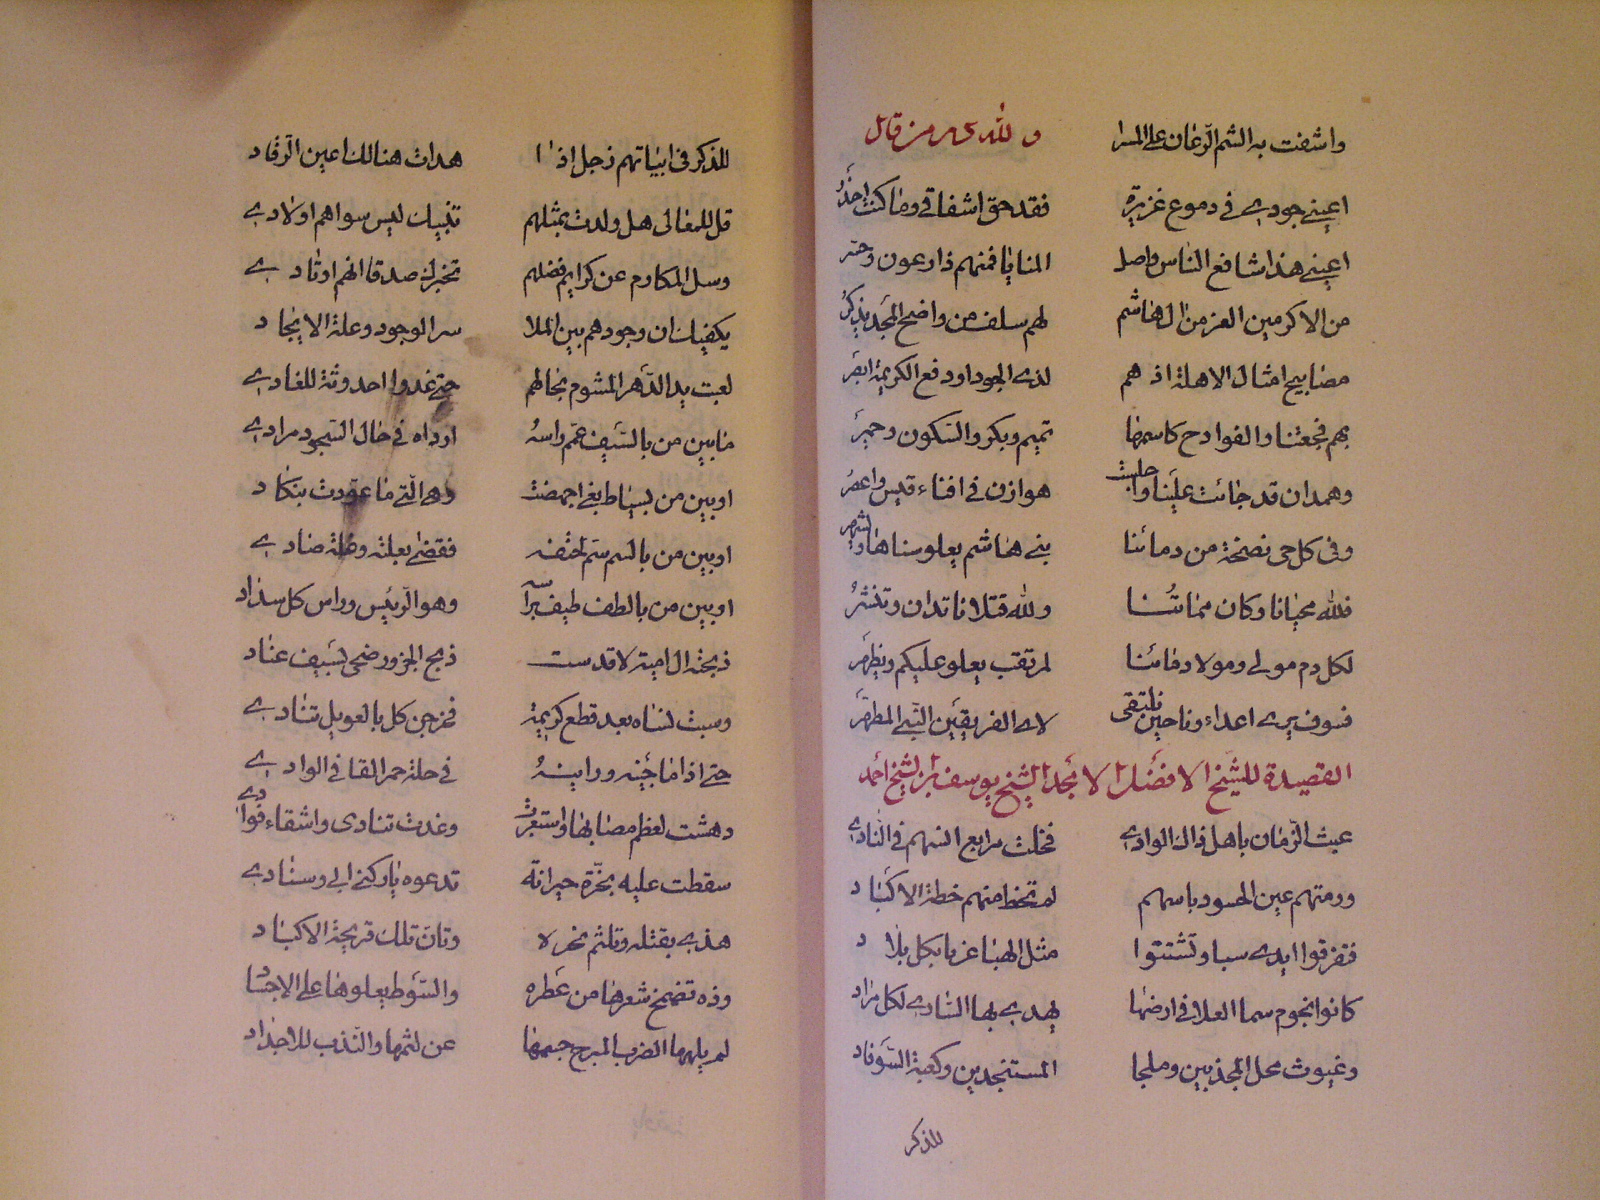 واشفت به الشم الرعان على المسرا ولله در من قال
اعيني جودي في دموع غزيرة فقد حق اشفاقي وما كنت احذر
اعيني هذا شافع الناس واصل المنايا فمنهم ذارعون وحسر
من الاكرمين الغر من ال هاشم لهم سلف من واضح المجد يذكر
مصابيح امثال الاهلة اذ هم لدى الجود او دفع الكريهة ابصر
بهم فجعتنا والفوادح كاسمها تميم وبكر والسكون وحمير
وهمدان قد جائت علينا واجلبت هوازن في افناء قيس واعصر
وفى كل حى نضخة من دمائنا بني هاشم يعلو سناها ويشهر
فلله محيانا وكان مماتنا ولله قتلانا تدان وتنشر
لكل دم مولى ومولا دمائنا لمرتقب يعلو عليكم ويظهر
فسوف يرى اعداءنا حين نلتقى لاى الفريقين النبي المطهر
القصيدة للشيخ الافضل الامجد الشيخ يوسف بن الشيخ احمد
عبث الزمان باهل ذاك الوادي فخلت مرابع انسهم في النادي
ورمتهم عين الحسود باسهم لم تخط منهم خطة الاكباد
فتفرقوا ايدى سبا وتشتتوا مثل الهبا غربا بكل بلاد
كانوا نجوم سما العلا في ارضها يهدى بها السارى لكل مراد
وغيوث محل المجدبين وملجا المستنجدين وكعبة الوفاد
للذكر
للذكر في ابياتهم زجل اذا هدات هنالك اعين الرقاد
قل للمعالى هل ولدت بمثلهم تنبيك ليس سواهم اولادي
وسل المكارم عن كرايم فضلهم تخبرك صدقا انهم اوتادي
يكفيك ان وجودهم بين الملا سر الوجود وعلة الايجاد
لعبت يد الدهر المشوم بجالهم حتى غدوا احدوثة للغادي
ما بين من بالسيف عمم راسه ارداه في حال السجود مرادي
او بين من بسياط بغي اجهضت وهى التي ما عودت بنكاد
او بين من بالسم سم لحتفه فقضى بعلته وغلة صادي
او بين من بالطف طيف براسه وهو الرئيس وراس كل سداد
ذبحته ال امية لا قدست ذبح الجزور ضحى بسيف عناد
وسبت نساه بعد قطع كريمه فخرجن كل بالعويل تنادي
حتى اذا ما جئنه وراينه في حلة حمر القا في الوادي
دهشت لعظم مصابها واستعبرت وغدت تنادى واشقاء فوادي
سقطت عليه بحرة حيرانة تدعوه يا ركني ابي وسنادي
هذى بقتله وتلثم نحره وتان تلك قريحة الاكباد
وذه تضمخ شعرها من عطره والسوط يعلوها على الاجساد
لم يلهها الضرب المبرح جسمها عن لثمها والندب للاجداد